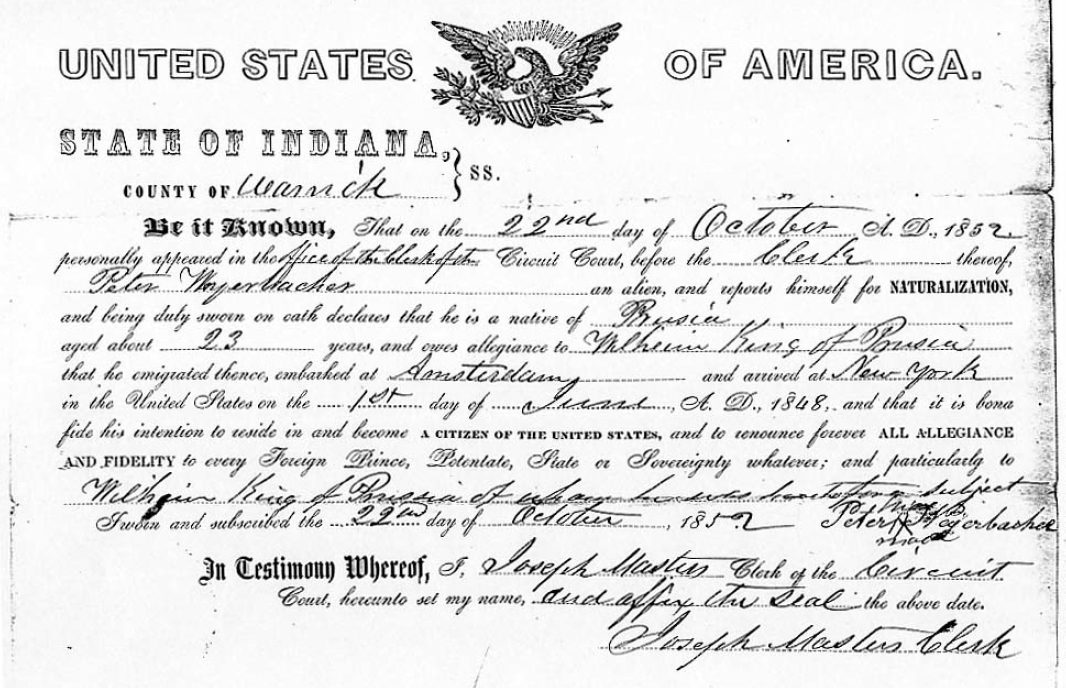 UNITED STATES OF AMERICA.
STATE OF INDIANA,
COUNTY OF Warrick } SS.
Be it Known, That on the 22nd day of October A. D., 1852.
personally appeared in the office of the Clerk of the Circuit Court, before the Clerk thereof,
Peter Moyerbacher an alien, and reports himself for NATURALIZATION,
and being duly sworn on oath declares that he is a native of Prusia
aged about 23 years, and owes allegiance to Wilheim King of Prusia
that he emigrated thence, embarked at Amsterdam and arrived at New York
in the United States on the 1st day of June, A. D., 1848, and that it is bona
fide his intention to reside in and become A CITIZEN OF THE UNITED STATES, and to renounce forever ALL ALLEGIANCE
AND FIDELITY to every Foreign Prince, Potentate, State or Sovereignty whatever; and particularly to
Wilheim King of Prusia of whom he was heretofore a subject
Sworn and subscribed the 22nd day of October, 1852 Peter his X mark
In Testimony Whereof, I, Joseph Masters Clerk of the Circuit
Court, hereunto set my name, and affix the seal the above date.
Joseph Masters Clerk